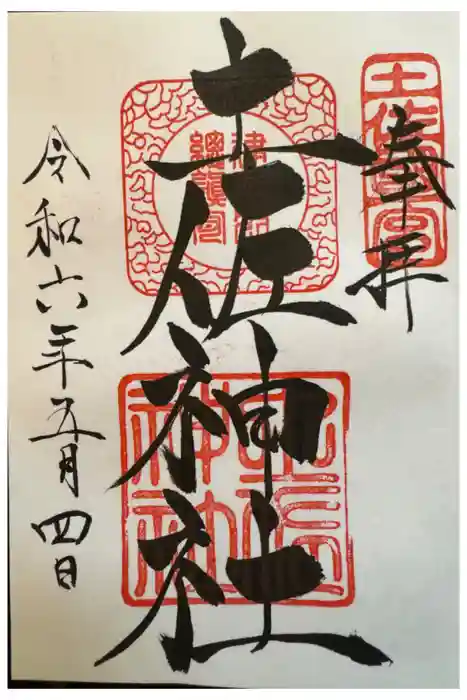 奉拝
土佐神社
令和六年五月四日
土佐神社